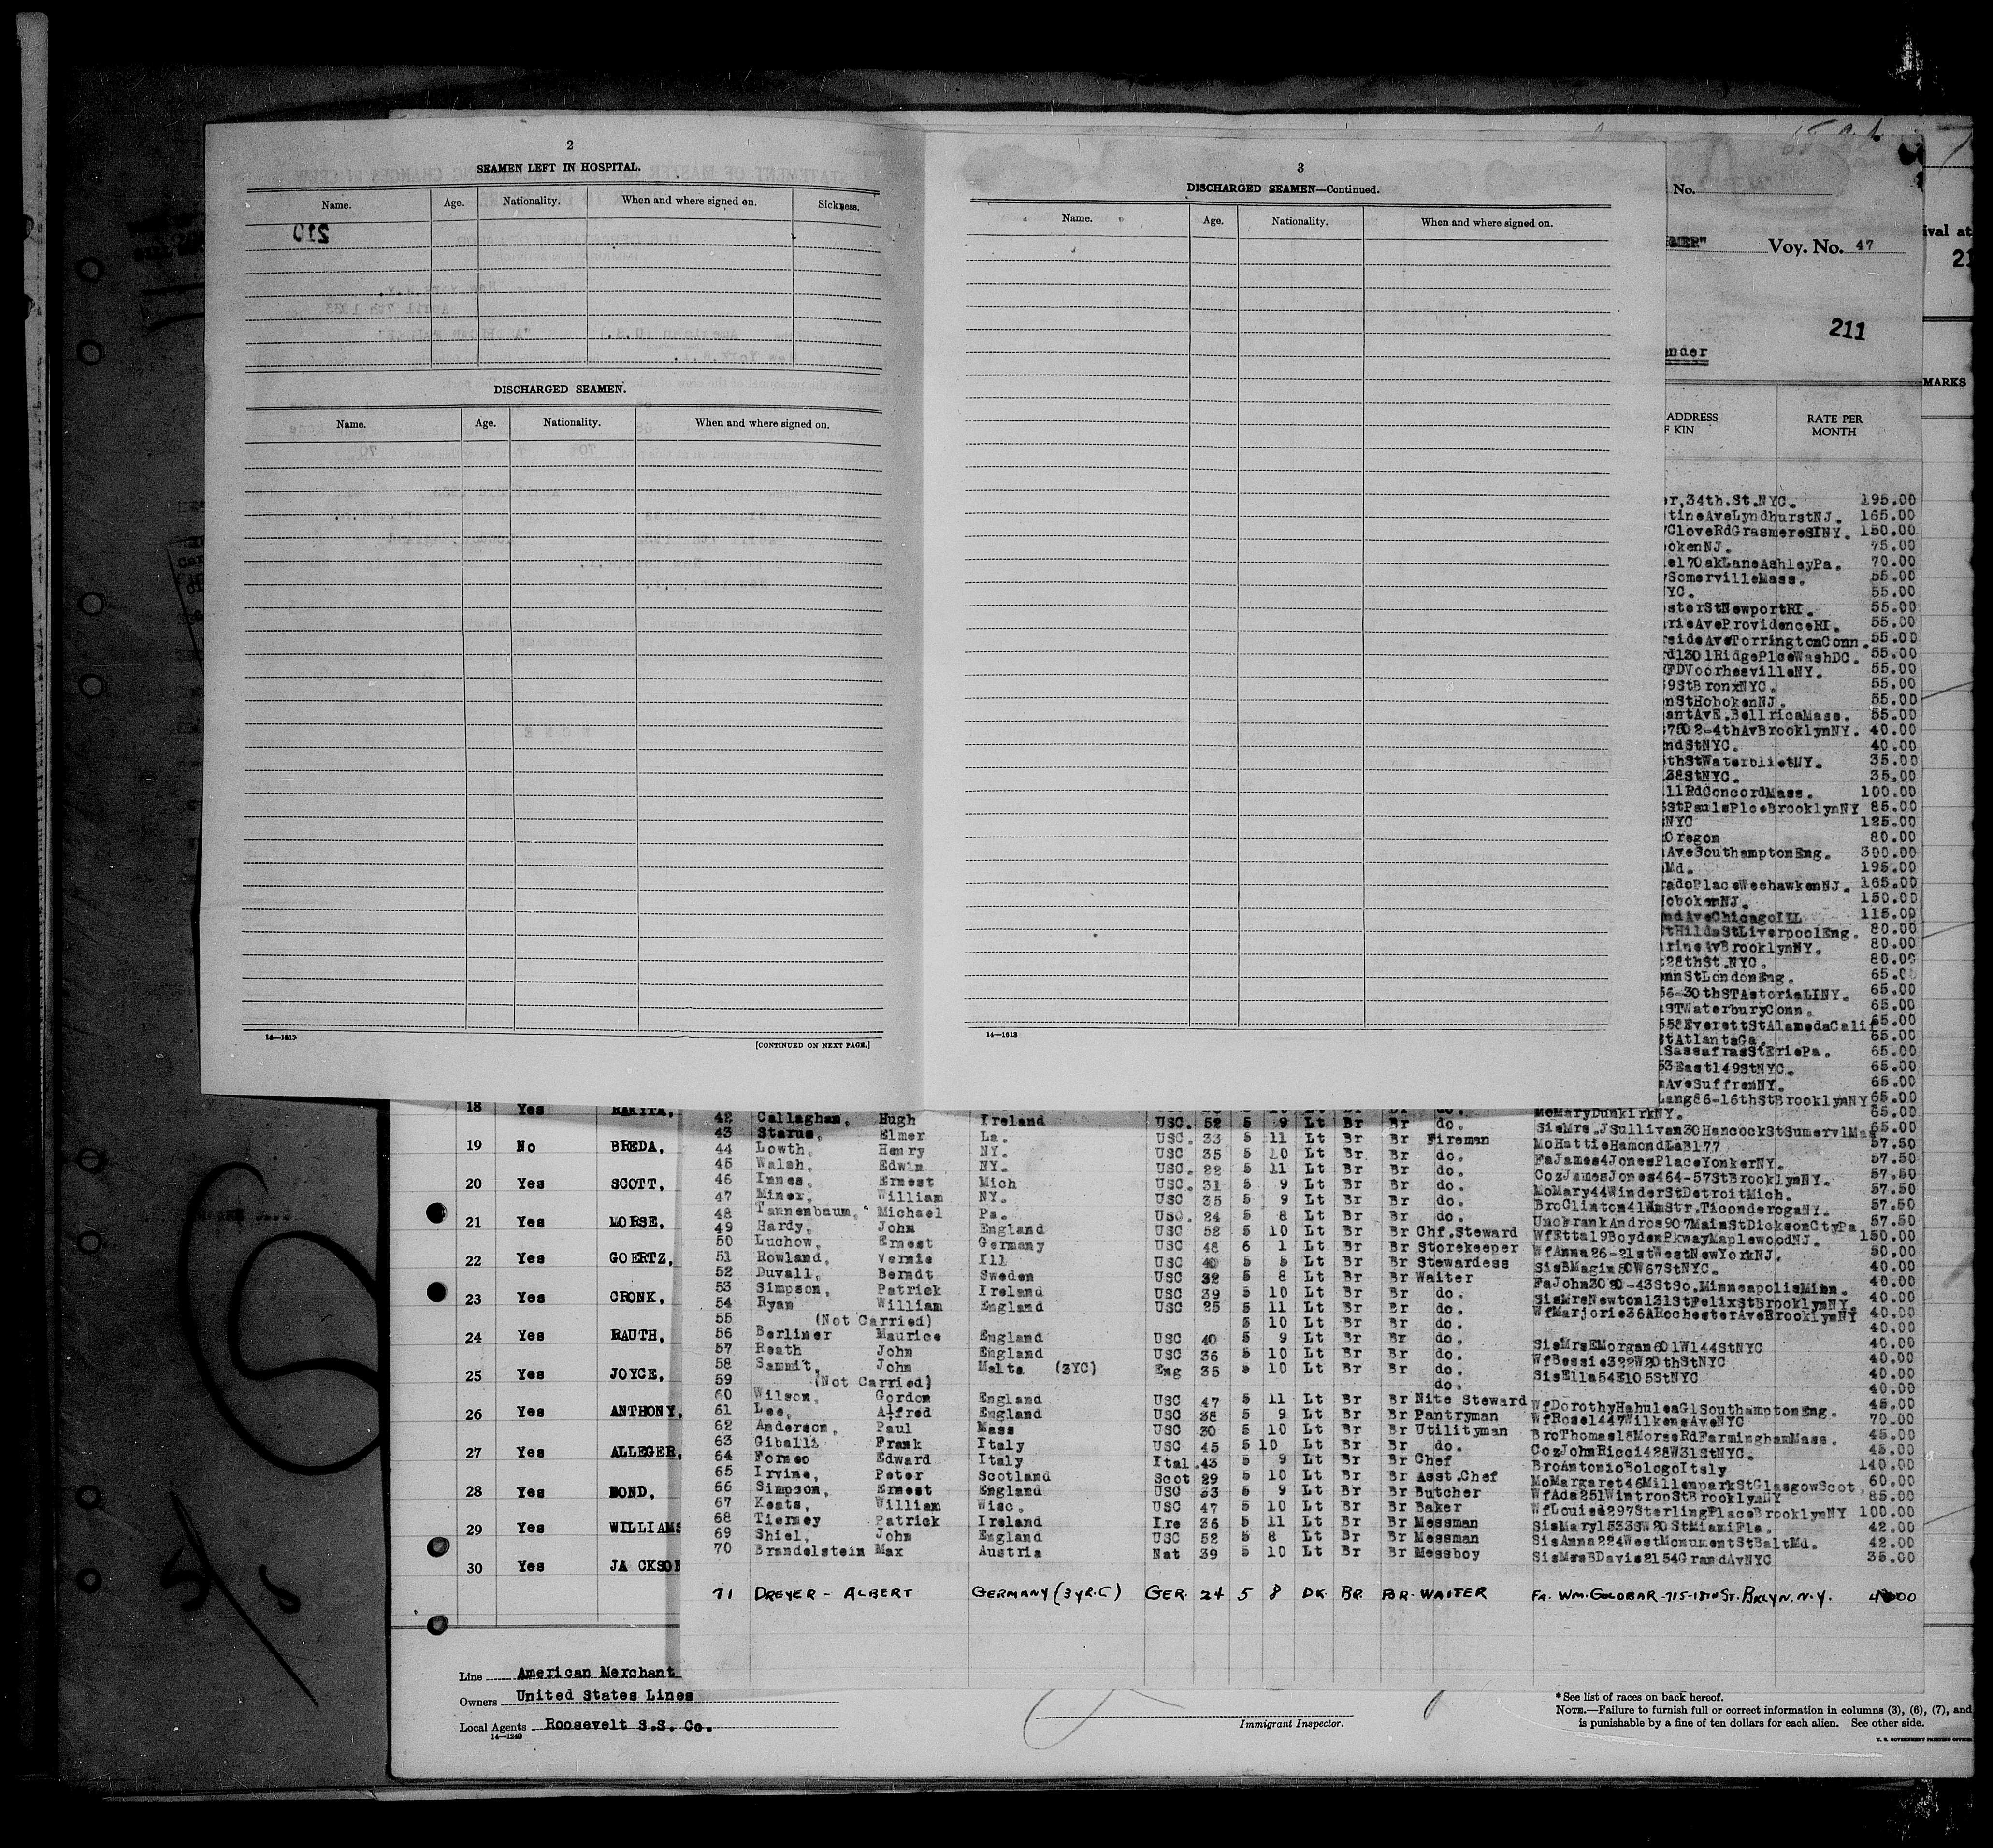 2
SEAMEN LEFT IN HOSPITAL.
Name. Age. Nationality. When and where signed on. Sickness.
210
DISCHARGED SEAMEN.
Name. Age. Nationality. When and where signed on.
14—1613
[CONTINUED ON NEXT PAGE.]
3
DISCHARGED SEAMEN—Continued.
Name. Age. Nationality. When and where signed on.
14—1613
No.
Voy. No. 47
ival at
211
MARKS
ADDRESS
F KIN
RATE PER
MONTH
34th.St.NYC. 195.00
tineAveLyndhurstNJ. 165.00
CloveRdGrasmereSINY. 150.00
okenNJ. 75.00
el7OakLaneAshleyPa. 70.00
SomervilleMass. 55.00
YC. 55.00
sterStNewportRI. 55.00
rieAveProvidenceRI. 55.00
sideAveTorringtonConn. 55.00
rd1301RidgePlceWashDC. 55.00
FDVoorhesvilleNY. 55.00
9StBronxNYC. 55.00
nStHobokenNJ. 55.00
antAvE.BellricaMass. 55.00
7502-4thAvBrooklynNY. 40.00
ndStNYC. 40.00
thStWaterblietNY. 35.00
38StNYC. 35.00
llRdConcordMass. 100.00
StPaulsPlceBrooklynNY 85.00
NYC 125.00
Oregon 80.00
AveSouthamptonEng. 300.00
Md. 195.00
radoPlaceWeehawkenNJ. 165.00
obokenNJ. 150.00
ndAveChicagoILL 115.00
tHildaStLiverpoolEng. 80.00
rineAvBrooklynNY. 80.00
28thSt.NYC. 80.00
nnStLondonEng. 65.00
56-30thSTAstoriaLINY. 65.00
STWaterburyConn. 65.00
558EverettStAlamedaCalif 65.00
tAtlantaGa. 65.00
SassafrasStEriePa. 65.00
53East149StNYC. 65.00
AveSuffrenNY. 65.00
Lang86-16thStBrooklynNY 65.00
MoMaryDunkirkNY. 65.00
42 Callaghan, Hugh Ireland USC. 52 5 9 Lt Br Br do. SisMrs.JSullivan30HancockStSumervlMas 65.00
43 Starus, Elmer La. USC. 33 5 11 Lt Br Br Fireman MoHattieHamondLaB177 57.50
44 Lowth, Henry NY. USC 35 5 10 Lt Br Br do. FaJames4JonesPlaceYonkerNY. 57.50
45 Walsh, Edwin NY. USC. 22 5 11 Lt Br Br do. CozJamesJones464-57StBrooklynNY. 57.50
46 Innes, Ernest Mich USC. 31 5 9 Lt Br Br do. MoMary44WinderStDetroitMich. 57.50
47 Miner, William NY. USC 35 5 9 Lt Br Br do. BroClinton41WmStr.TiconderogaNY. 57.50
48 Tannenbaum, Michael Pa. USC. 24 5 8 Lt Br Br do. UncFrankAndros907MainStDicksonCtyPa 57.50
49 Hardy, John England USC 52 5 10 Lt Br Br Chf.Steward WfEtta19BoydenPkwayMaplewoodNJ. 150.00
50 Luchow, Ernest Germany USC 48 6 1 Lt Br Br Storekeeper WfAnna26-21stWestNewYorkNJ. 50.00
51 Rowland, Vernie Ill USC 40 5 5 Lt Br Br Stewardess SisBMagin50W67StNYC. 40.00
52 Duvall, Berndt Sweden USC 32 5 8 Lt Br Br Waiter FaJohn3020-43StSo.MinneapolisMinn. 40.00
53 Simpson, Patrick Ireland USC 39 5 10 Lt Br Br do. SisMrsNewton131StFelixStBrooklynNY. 40.00
54 Ryan William England USC 25 5 11 Lt Br Br do. WfMarjorie36ARochesterAveBrooklynNY 40.00
55 (Not Carried) 5 10 Lt Br Br do. 40.00
56 Berliner Maurice England USC 40 5 9 Lt Br Br do. SisMrsEMorgan601W144StNYC 40.00
57 Reath John England USC 36 5 10 Lt Br Br do. WfBessie322W20thStNYC 40.00
58 Sammit, John Malta (3YC) Eng 35 5 10 Lt Br Br do. SisElla54E105StNYC 40.00
59 (Not Carried) do. 40.00
60 Wilson, Gordon England USC 47 5 11 Lt Br Br Nite Steward WfDorothyHahuleaGlSouthamptonEng. 45.00
61 Lee, Alfred England USC 38 5 9 Lt Br Br Pantryman WfRose1447WilkensAveNYC 70.00
62 Anderson, Paul Mass USC 30 5 10 Lt Br Br Utilityman BroThomas18MorseRdFarminghamMass. 45.00
63 Giballi Frank Italy USC 45 5 10 Lt Br Br do. CozJohnRicci428W31StNYC. 45.00
64 Forneo Edward Italy Ital. 43 5 9 Lt Br Br Chef BroAntonioBologoItaly 140.00
65 Irvine, Peter Scotland Scot 29 5 10 Lt Br Br Asst.Chef MoMargaret46MillenparkStGlasgowScot. 60.00
66 Simpson, Ernest England USC 53 5 9 Lt Br Br Butcher WfAda251WintropStBrooklynNY 85.00
67 Keats, William Wisc. USC 47 5 10 Lt Br Br Baker WfLouise297SterlingPlaceBrooklynNY 100.00
68 Tierney Patrick Ireland Ire 36 5 11 Lt Br Br Messman SisMary1533SW20StMiamiFla. 42.00
69 Shiel, John England USC 52 5 8 Lt Br Br Messman SisAnna224WestMonumentStBaltMd. 42.00
70 Brandelstein Max Austria Nat 39 5 10 Lt Br Br Messboy SisMrsBDavis2154GrandAvNYC 35.00
71 DREYER - ALBERT GERMANY (3 YR.C) GER. 24 5 8 DK. BR. BR. WAITER FA. WM. GOLOBAR-715-18TH ST. BKLYN. N.Y.
18 Yes RAKITA,
19 No BREDA,
20 Yes SCOTT,
21 Yes MORSE,
22 Yes GOERTZ,
23 Yes CRONK,
24 Yes RAUTH,
25 Yes JOYCE,
26 Yes ANTHONY,
27 Yes ALLEGER,
28 Yes BOND,
29 Yes WILLIAMS
30 Yes JACKSON
Line American Merchant
Owners United States Lines
Local Agents Roosevelt S.S. Co.
14—1240
Immigrant Inspector.
*See list of races on back hereof.
NOTE.—Failure to furnish full or correct information in columns (3), (6), (7), and
is punishable by a fine of ten dollars for each alien. See other side.
U. S. GOVERNMENT PRINTING OFFICE